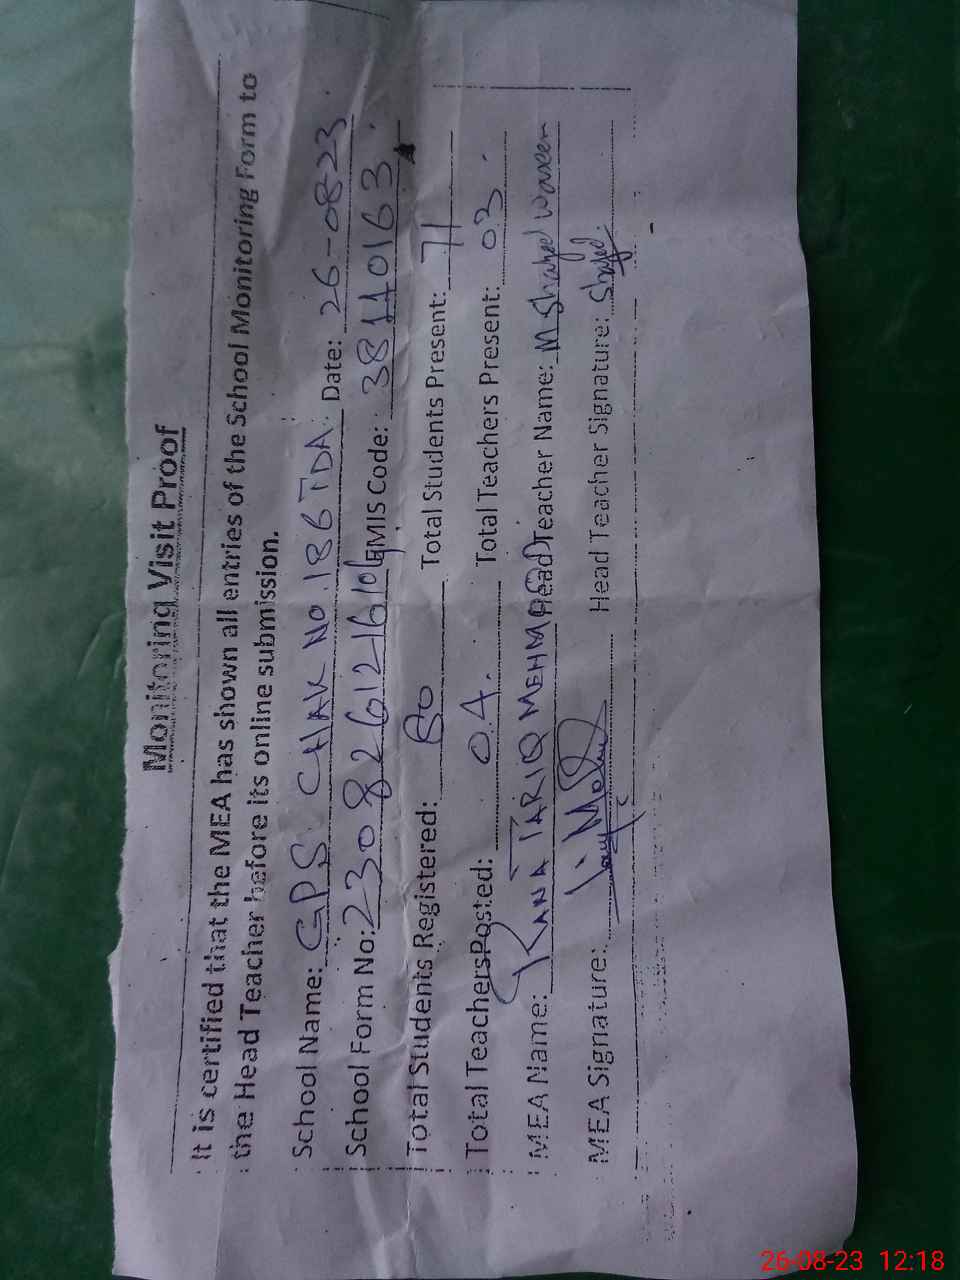 Monitoring Visit Proof
It is certified that the MEA has shown all entries of the School Monitoring Form to
the Head Teacher before its online submission.
School Name: GPS CHAK NO. 186 TDA. Date: 26-08-23
School Form No: 2308261216101 EMIS Code: 38110163.
Total Students Registered: 80 Total Students Present: 71
Total Teachers Posted: 04. Total Teachers Present: 03.
MEA Name: RANA TARIQ MEHMOOD Head Teacher Name: M Shahid Waseem
MEA Signature: Head Teacher Signature: Shahid
26-08-23 12:18